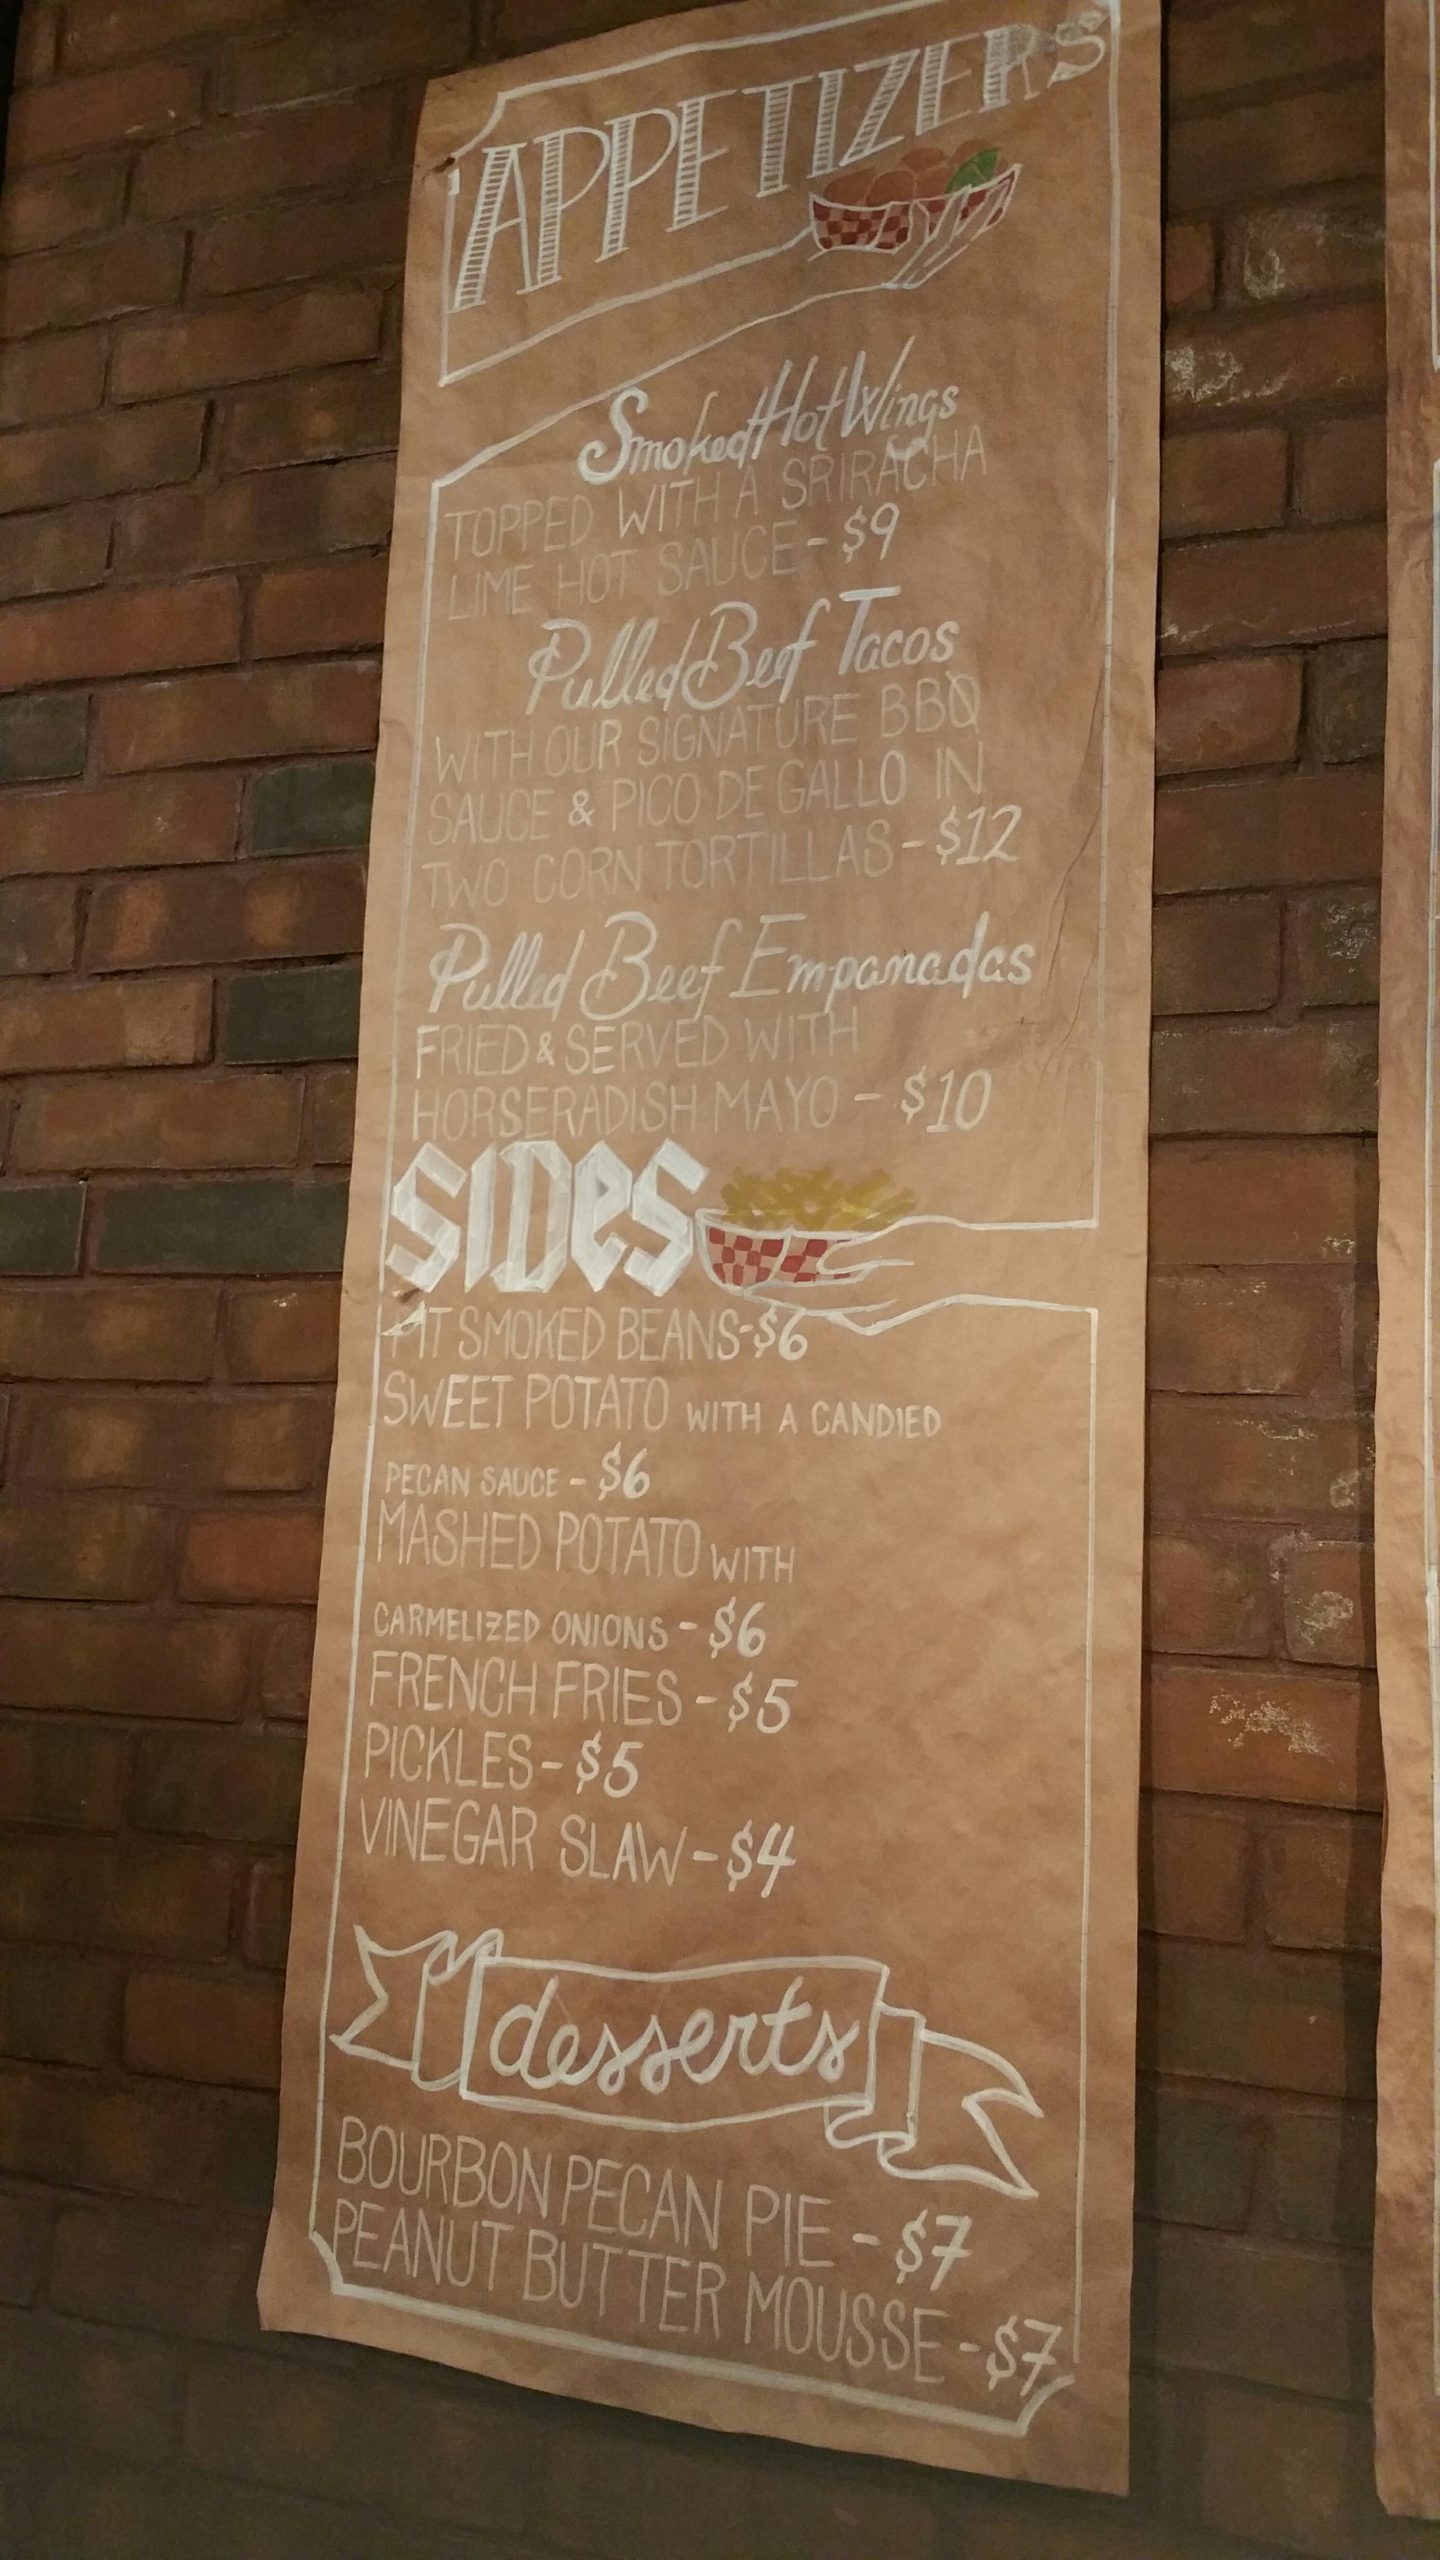 APPETIZERS
Smoked Hot Wings
TOPPED WITH A SRIRACHA
LIME HOT SAUCE - $9
Pulled Beef Tacos
WITH OUR SIGNATURE BBQ
SAUCE & PICO DE GALLO IN
TWO CORN TORTILLAS - $12
Pulled Beef Empanadas
FRIED & SERVED WITH
HORSERADISH MAYO - $10
SIDeS
PIT SMOKED BEANS - $6
SWEET POTATO WITH A CANDIED
PECAN SAUCE - $6
MASHED POTATO WITH
CARMELIZED ONIONS - $6
FRENCH FRIES - $5
PICKLES - $5
VINEGAR SLAW - $4
desserts
BOURBON PECAN PIE - $7
PEANUT BUTTER MOUSSE - $7